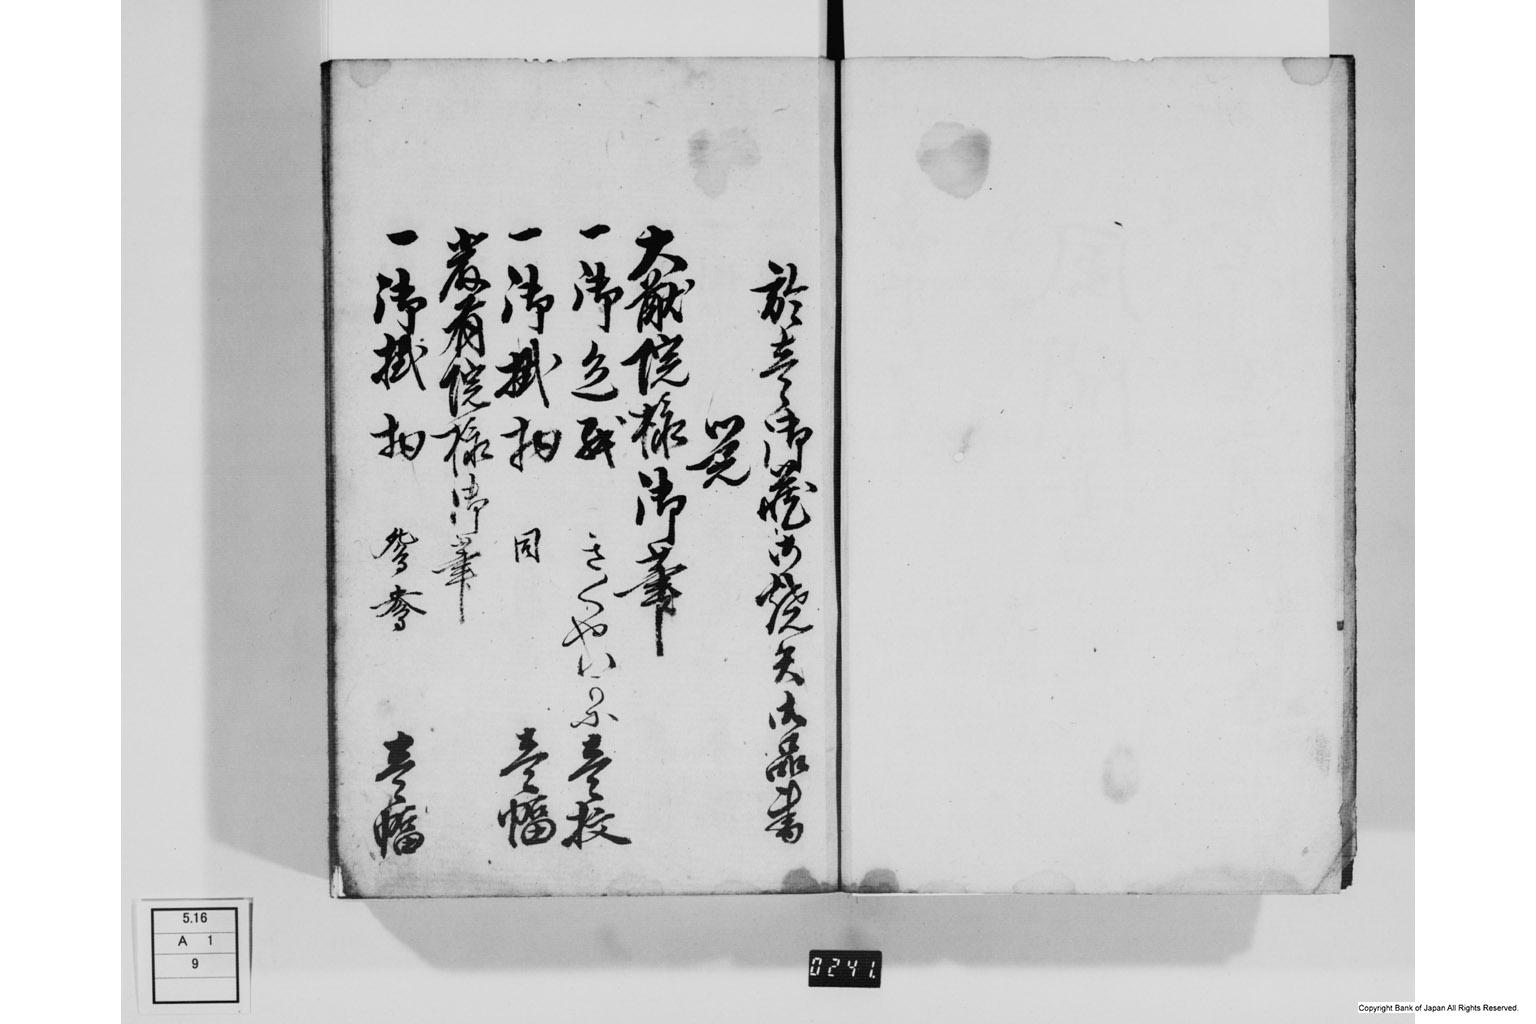 於壱御蔵御焼失御品書
覚
大猷院様御筆
一御色紙 きくやいろに 壱枚
一御掛物 同 壱幅
厳有院様御筆
一御掛物 鴛鴦 壱幅
5.16
A 1
9
0241.
Copyright Bank of Japan All Rights Reserved.